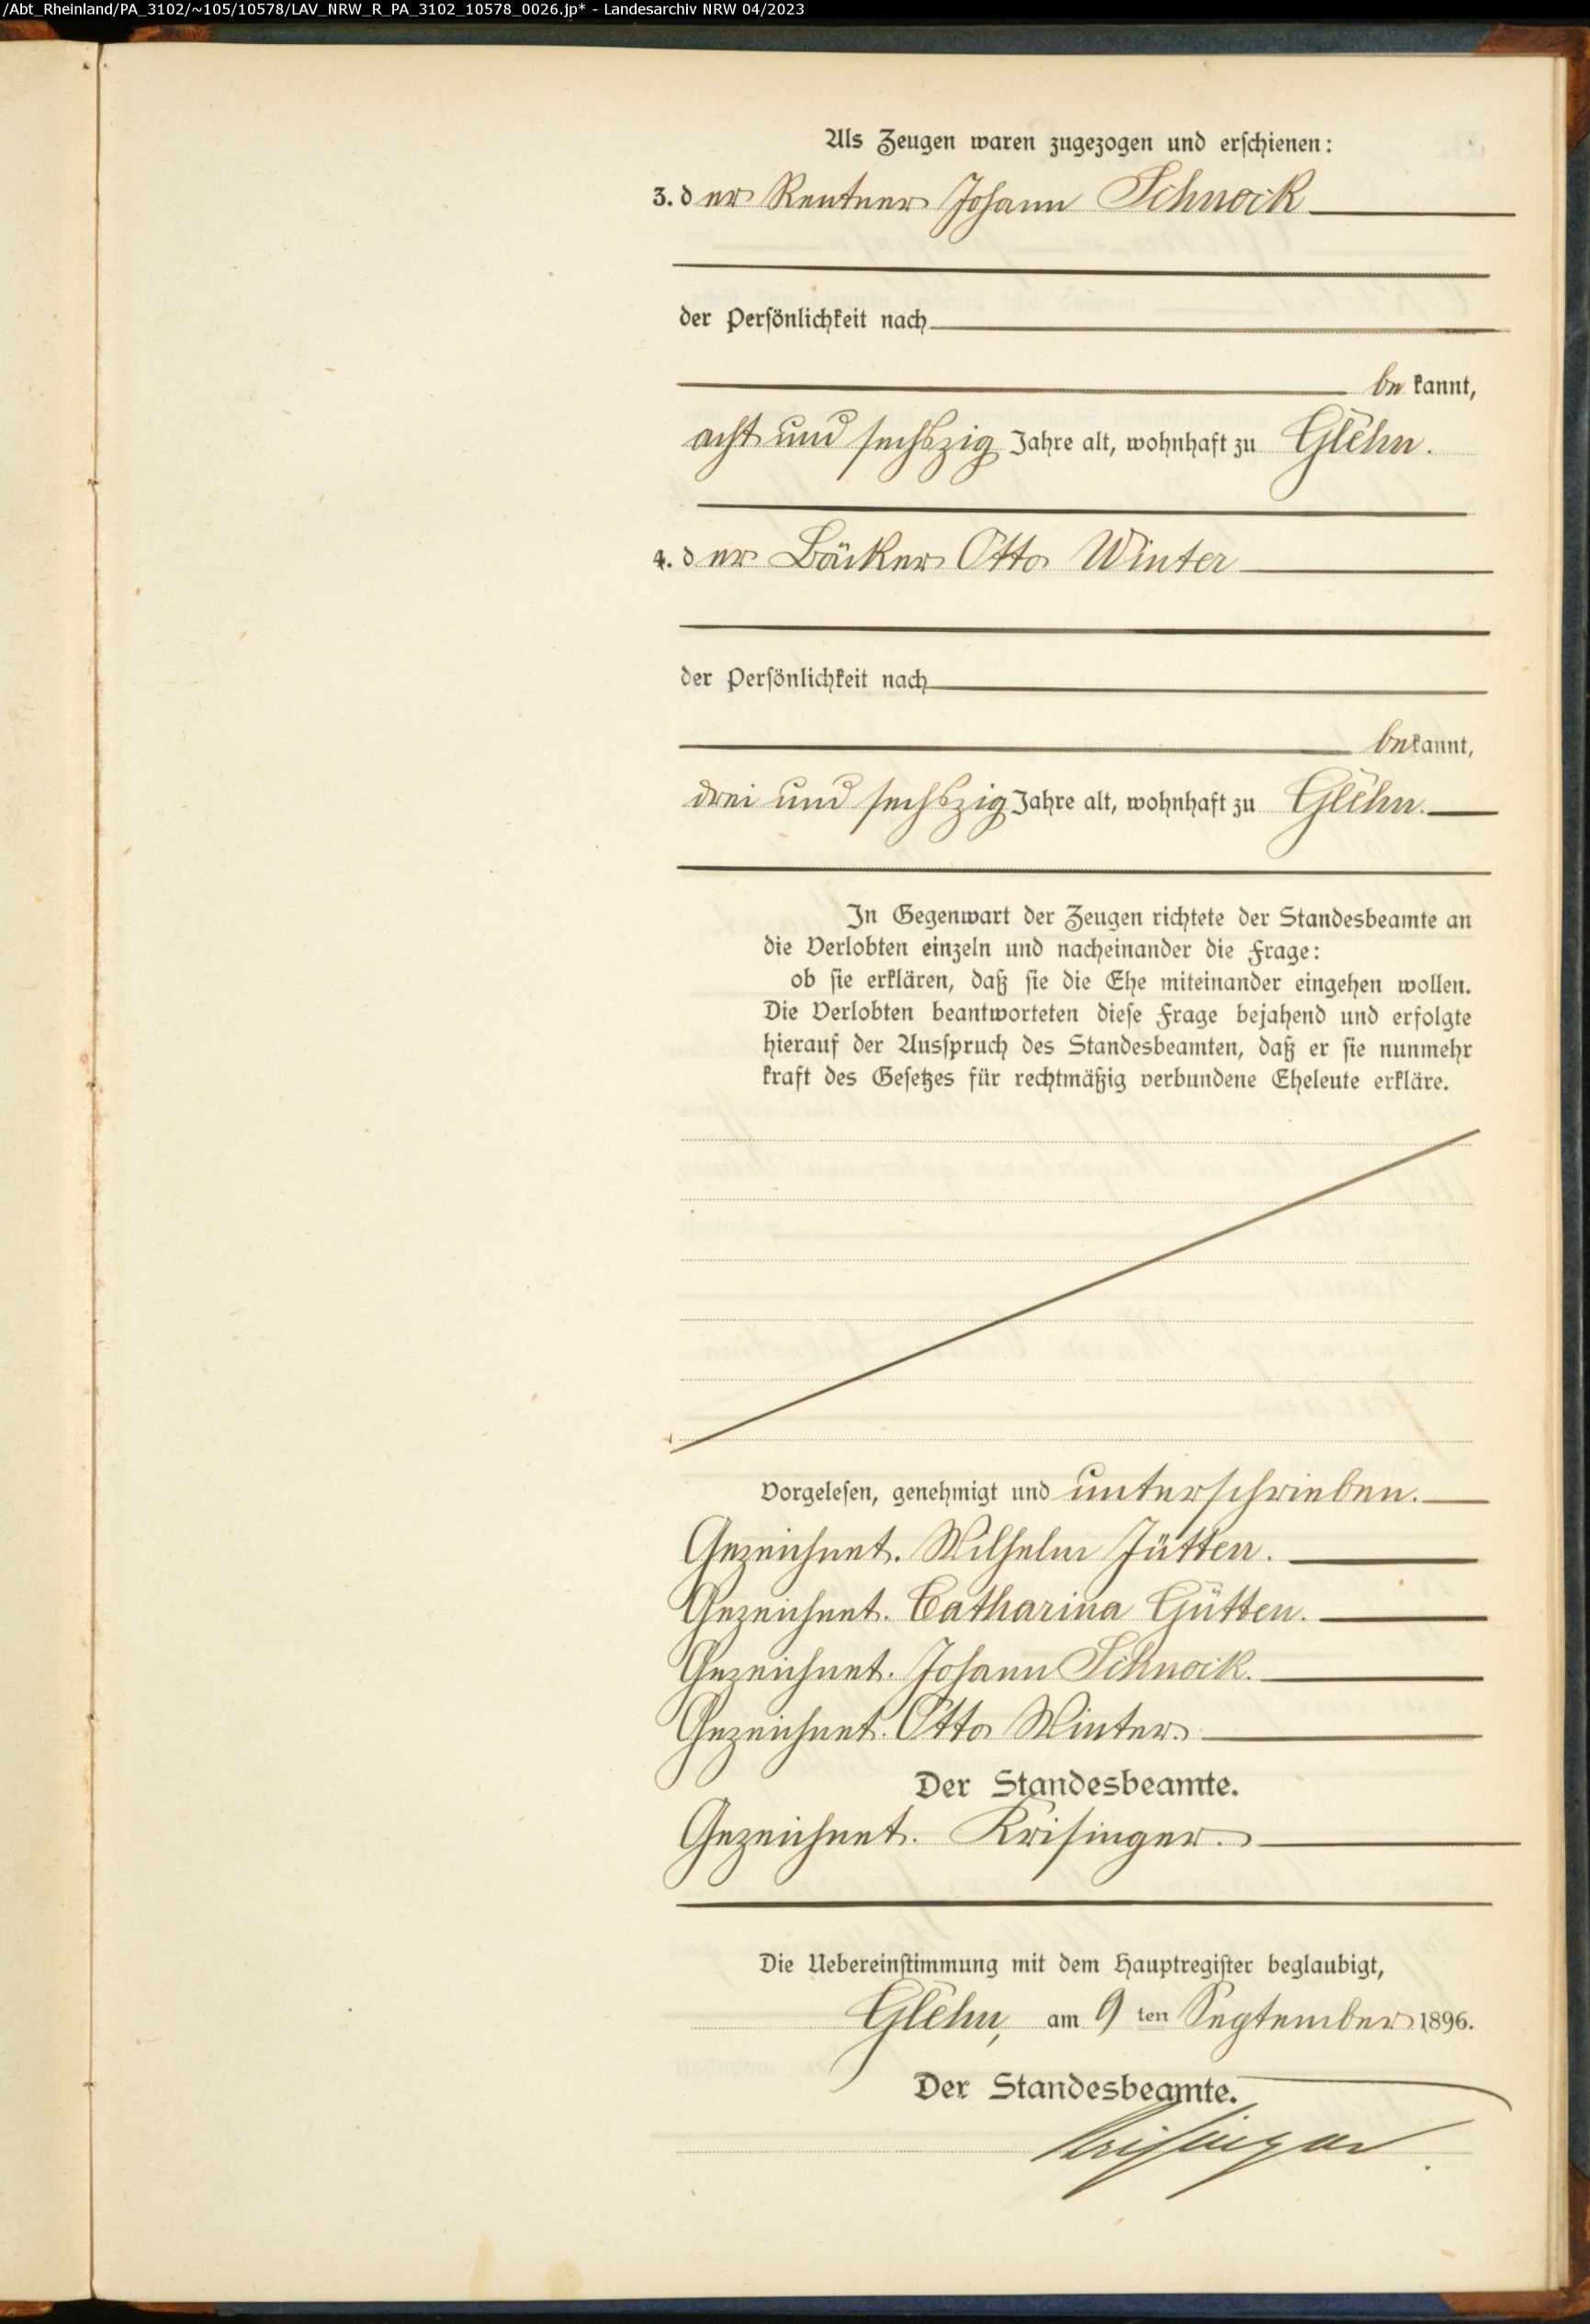 /Abt_Rheinland/PA_3102/~105/10578/LAV_NRW_R_PA_3102_10578_0026.jp* - Landesarchiv NRW 04/2023
Als Zeugen waren zugezogen und erschienen:
3. der Rentner Johann Schnock
der Persönlichkeit nach
be kannt,
acht und sechszig Jahre alt, wohnhaft zu Glehn.
4. der Bäcker Otto Winter
der Persönlichkeit nach
bekannt,
drei und sechszig Jahre alt, wohnhaft zu Glehn.
In Gegenwart der Zeugen richtete der Standesbeamte an
die Verlobten einzeln und nacheinander die Frage:
ob sie erklären, daß sie die Ehe miteinander eingehen wollen.
Die Verlobten beantworteten diese Frage bejahend und erfolgte
hierauf der Ausspruch des Standesbeamten, daß er sie nunmehr
kraft des Gesetzes für rechtmäßig verbundene Eheleute erkläre.
Vorgelesen, genehmigt und unterschrieben.
Gezeichnet. Wilhelm Jütten.
Gezeichnet. Catharina Gütten.
Gezeichnet. Johann Schnock.
Gezeichnet. Otto Winter.
Der Standesbeamte.
Gezeichnet. Krisinger.
Die Uebereinstimmung mit dem Hauptregister beglaubigt,
Glehn, am 9 ten September 1896.
Der Standesbeamte.
Krisinger